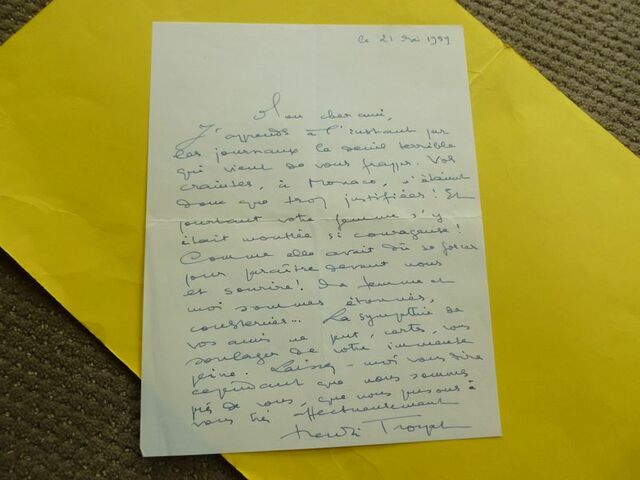 le 21 Mai 1959
Mon cher ami,
J'apprends à l'instant par
les journaux le deuil terrible
qui vient de vous frapper. Vos
craintes, à Monaco, n'étaient
donc que trop justifiées ! Et
pourtant votre femme s'y
était montrée si courageuse !
Comme elle avait dû se forcer
pour paraître devant nous
et sourire ! Ma femme et
moi sommes étonnés,
consternés... La sympathie de
vos amis ne peut, certes, vous
soulager de votre immense
peine. Laissez-moi vous dire
cependant que nous sommes
près de vous, que nous pensons à
vous très affectueusement
Henri Troyat